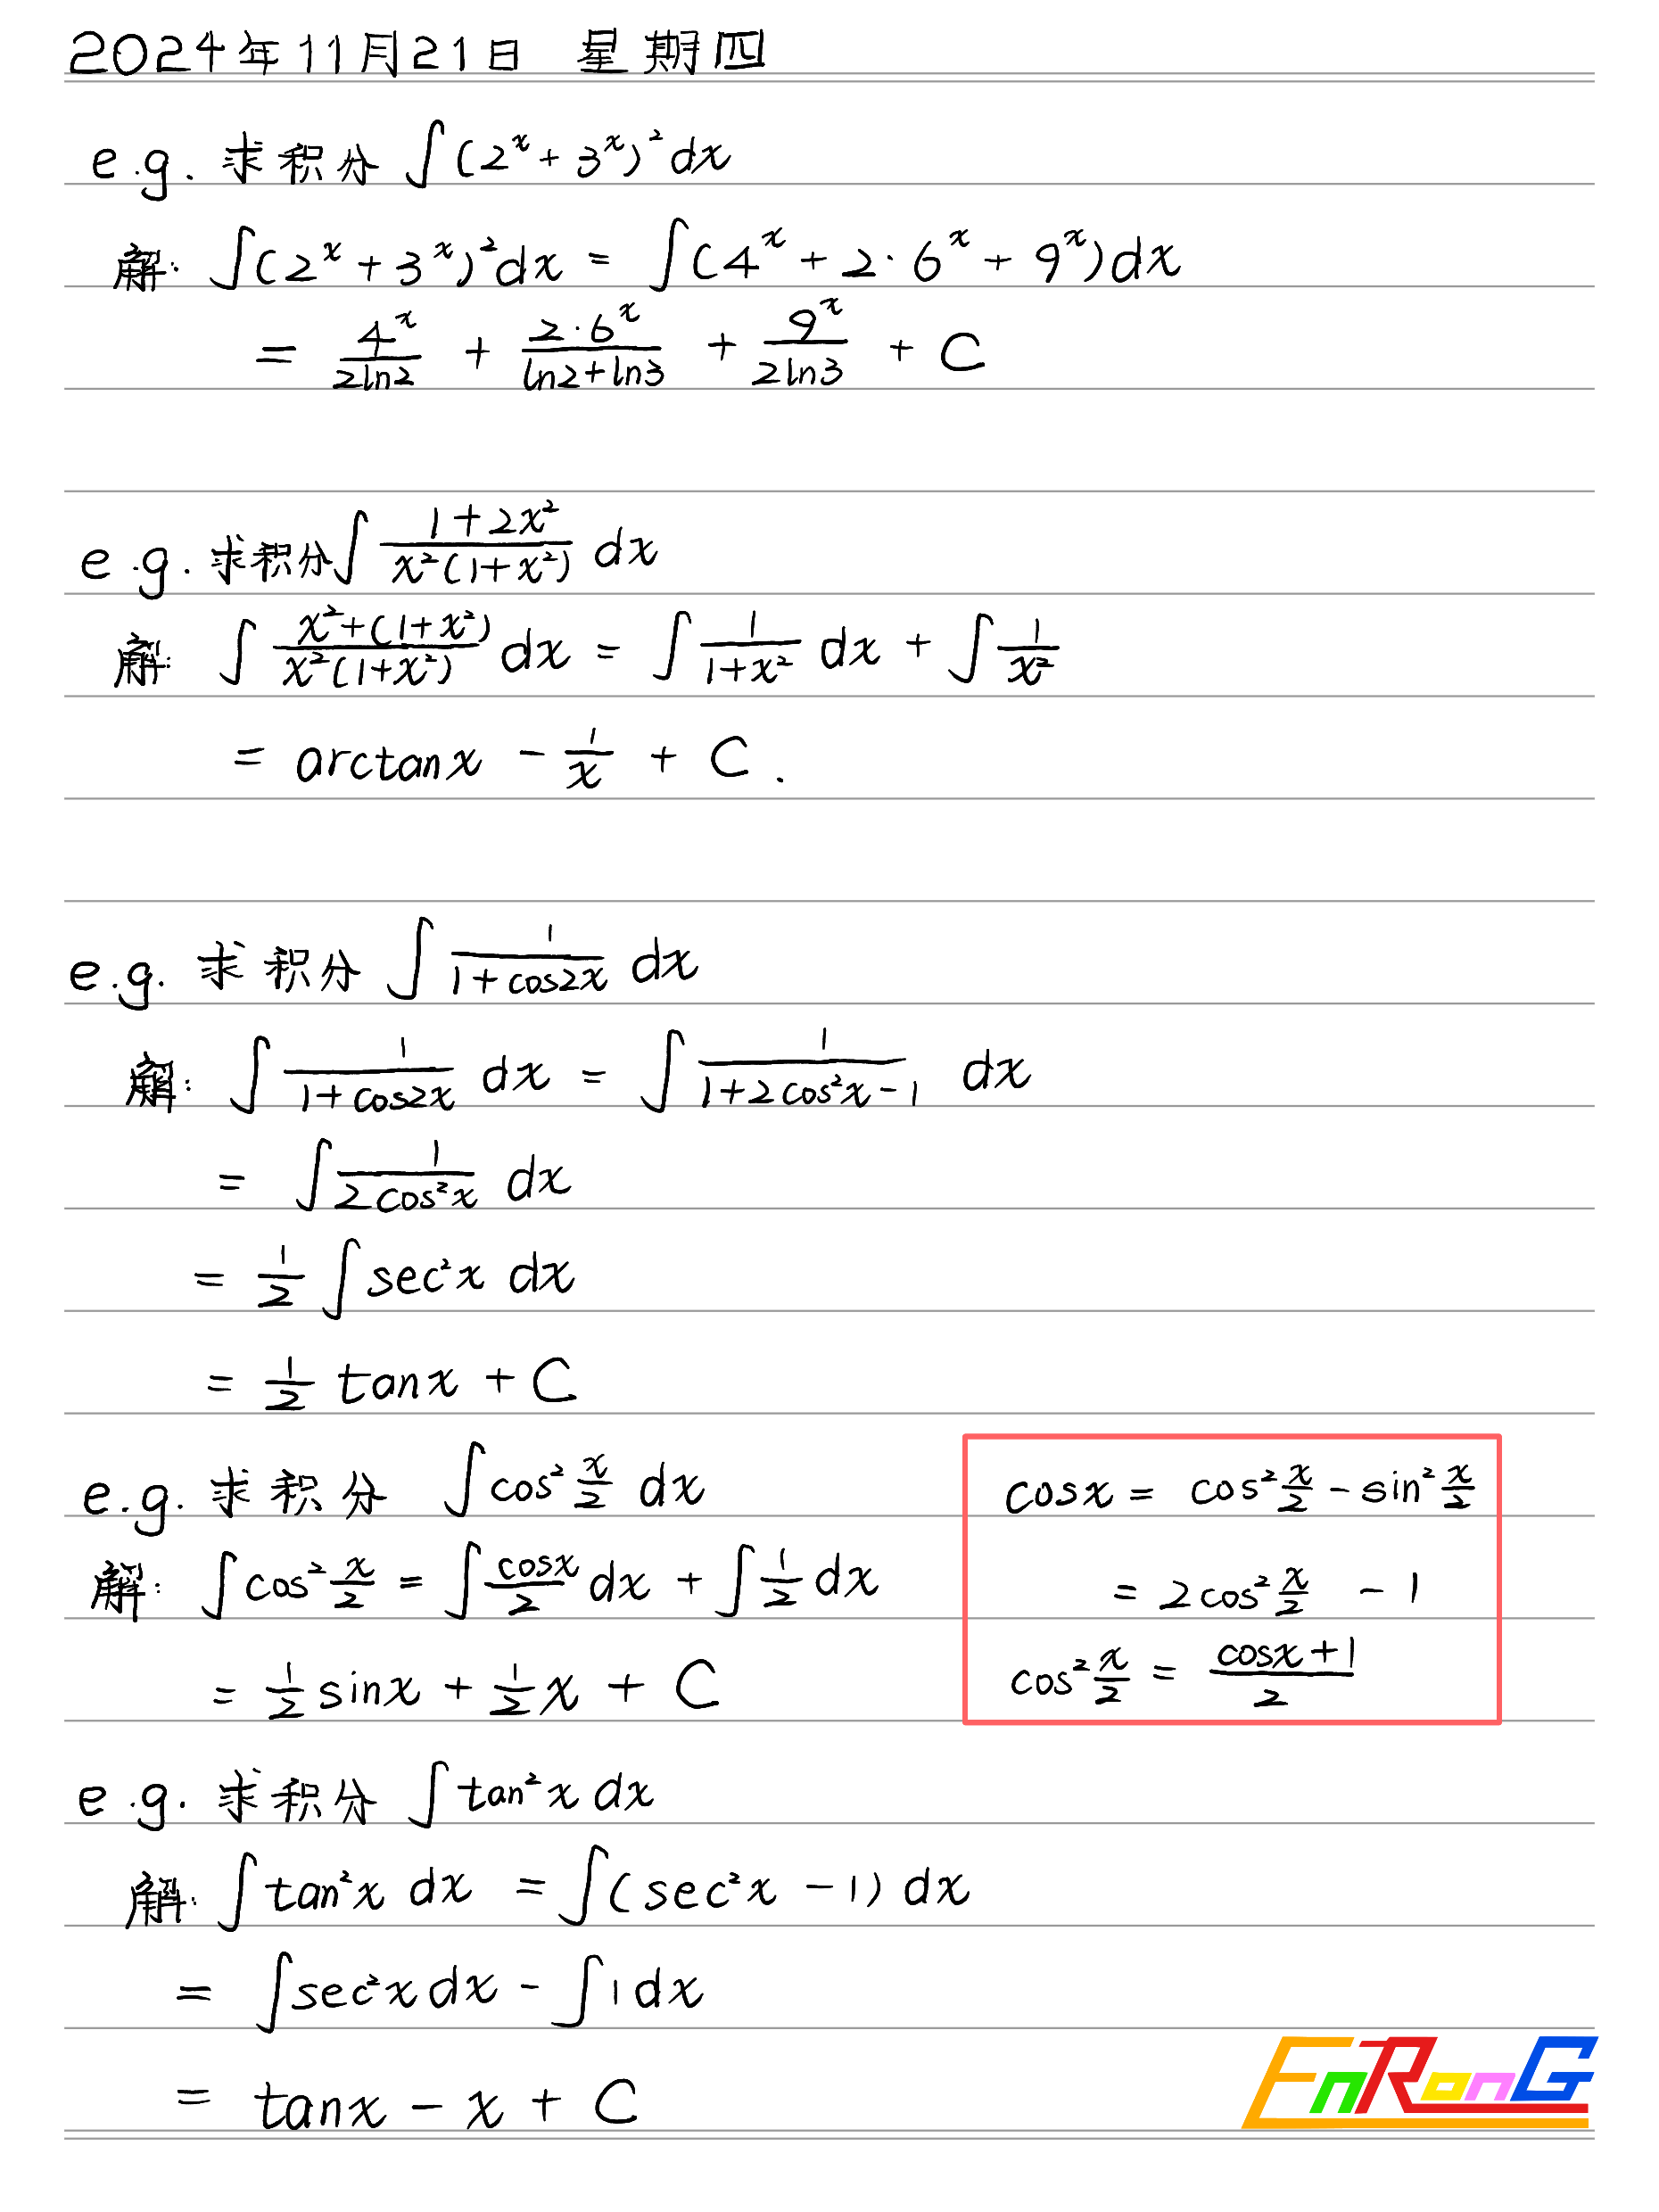 2024年11月21日 星期四
e.g. 求积分 ∫(2^x + 3^x)^2 dx
解: ∫(2^x + 3^x)^2 dx = ∫(4^x + 2·6^x + 9^x)dx
= 4^x/(2ln2) + 2·6^x/(ln2+ln3) + 9^x/(2ln3) + C
e.g. 求积分∫ (1+2x²)/(x²(1+x²)) dx
解: ∫ (x²+(1+x²))/(x²(1+x²)) dx = ∫ 1/(1+x²) dx + ∫ 1/x²
= arctanx - 1/x + C.
e.g. 求积分 ∫ 1/(1+cos2x) dx
解: ∫ 1/(1+cos2x) dx = ∫ 1/(1+2cos²x-1) dx
= ∫ 1/(2cos²x) dx
= 1/2 ∫ sec²x dx
= 1/2 tanx + C
e.g. 求积分 ∫cos² x/2 dx
解: ∫cos² x/2 = ∫ cosx/2 dx + ∫ 1/2 dx
= 1/2 sinx + 1/2 x + C
cosx = cos² x/2 - sin² x/2
= 2cos² x/2 - 1
cos² x/2 = (cosx+1)/2
e.g. 求积分 ∫tan²x dx
解: ∫tan²x dx = ∫(sec²x - 1) dx
= ∫sec²x dx - ∫1dx
= tanx - x + C
EnRonG